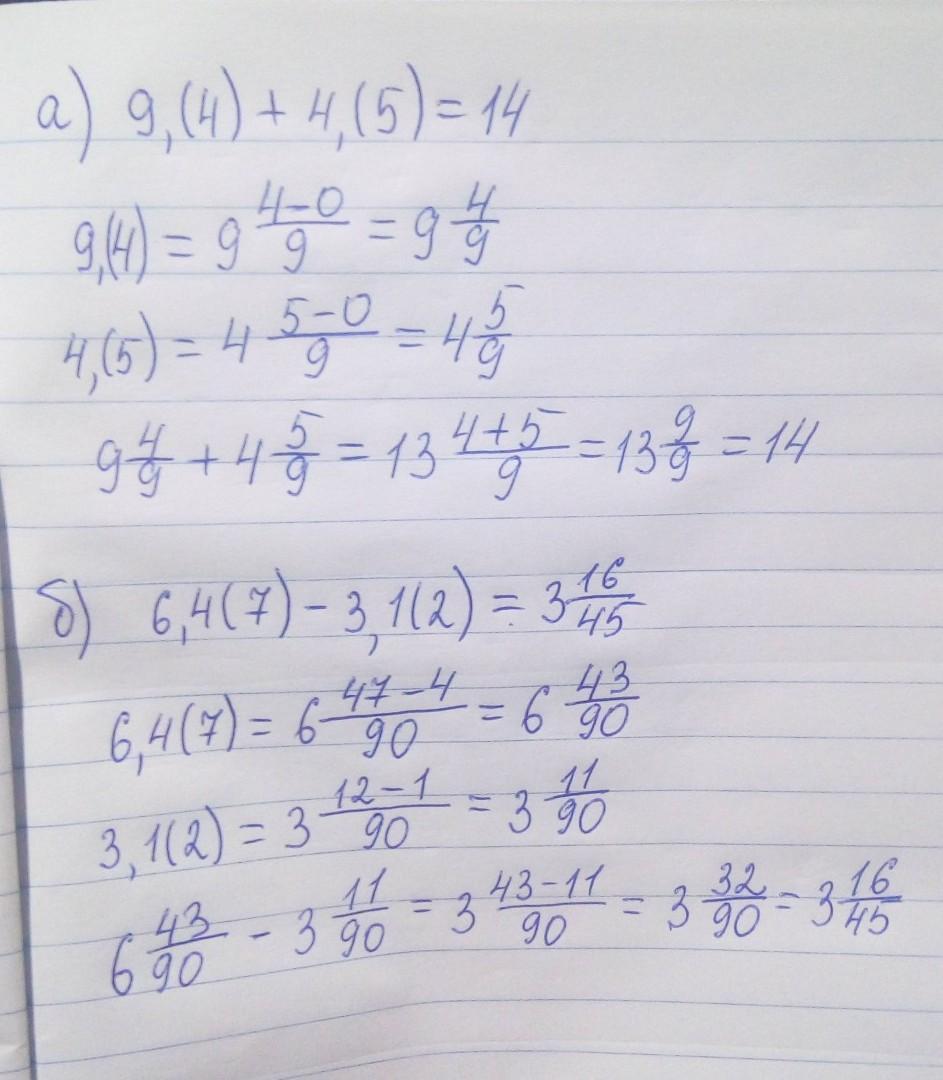 а) 9,(4) + 4,(5) = 14
9,(4) = 9 4-0/9 = 9 4/9
4,(5) = 4 5-0/9 = 4 5/9
9 4/9 + 4 5/9 = 13 4+5/9 = 13 9/9 = 14
б) 6,4(7) - 3,1(2) = 3 16/45
6,4(7) = 6 47-4/90 = 6 43/90
3,1(2) = 3 12-1/90 = 3 11/90
6 43/90 - 3 11/90 = 3 43-11/90 = 3 32/90 = 3 16/45